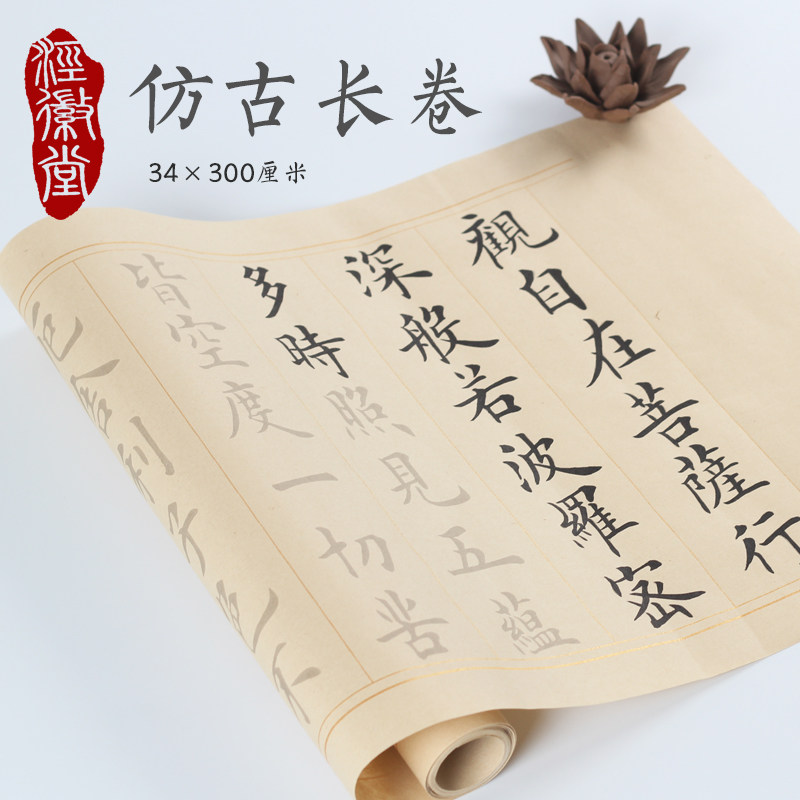 涇徽堂
仿古长卷
34×300厘米
觀自在菩薩行
深般若波羅密
多時照見五蘊
皆空度一切苦
厄舍利子色不